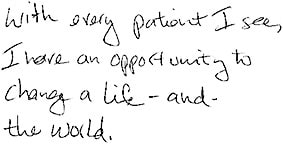 With every patient I see,
I have an opportunity to
change a life - and -
the world.